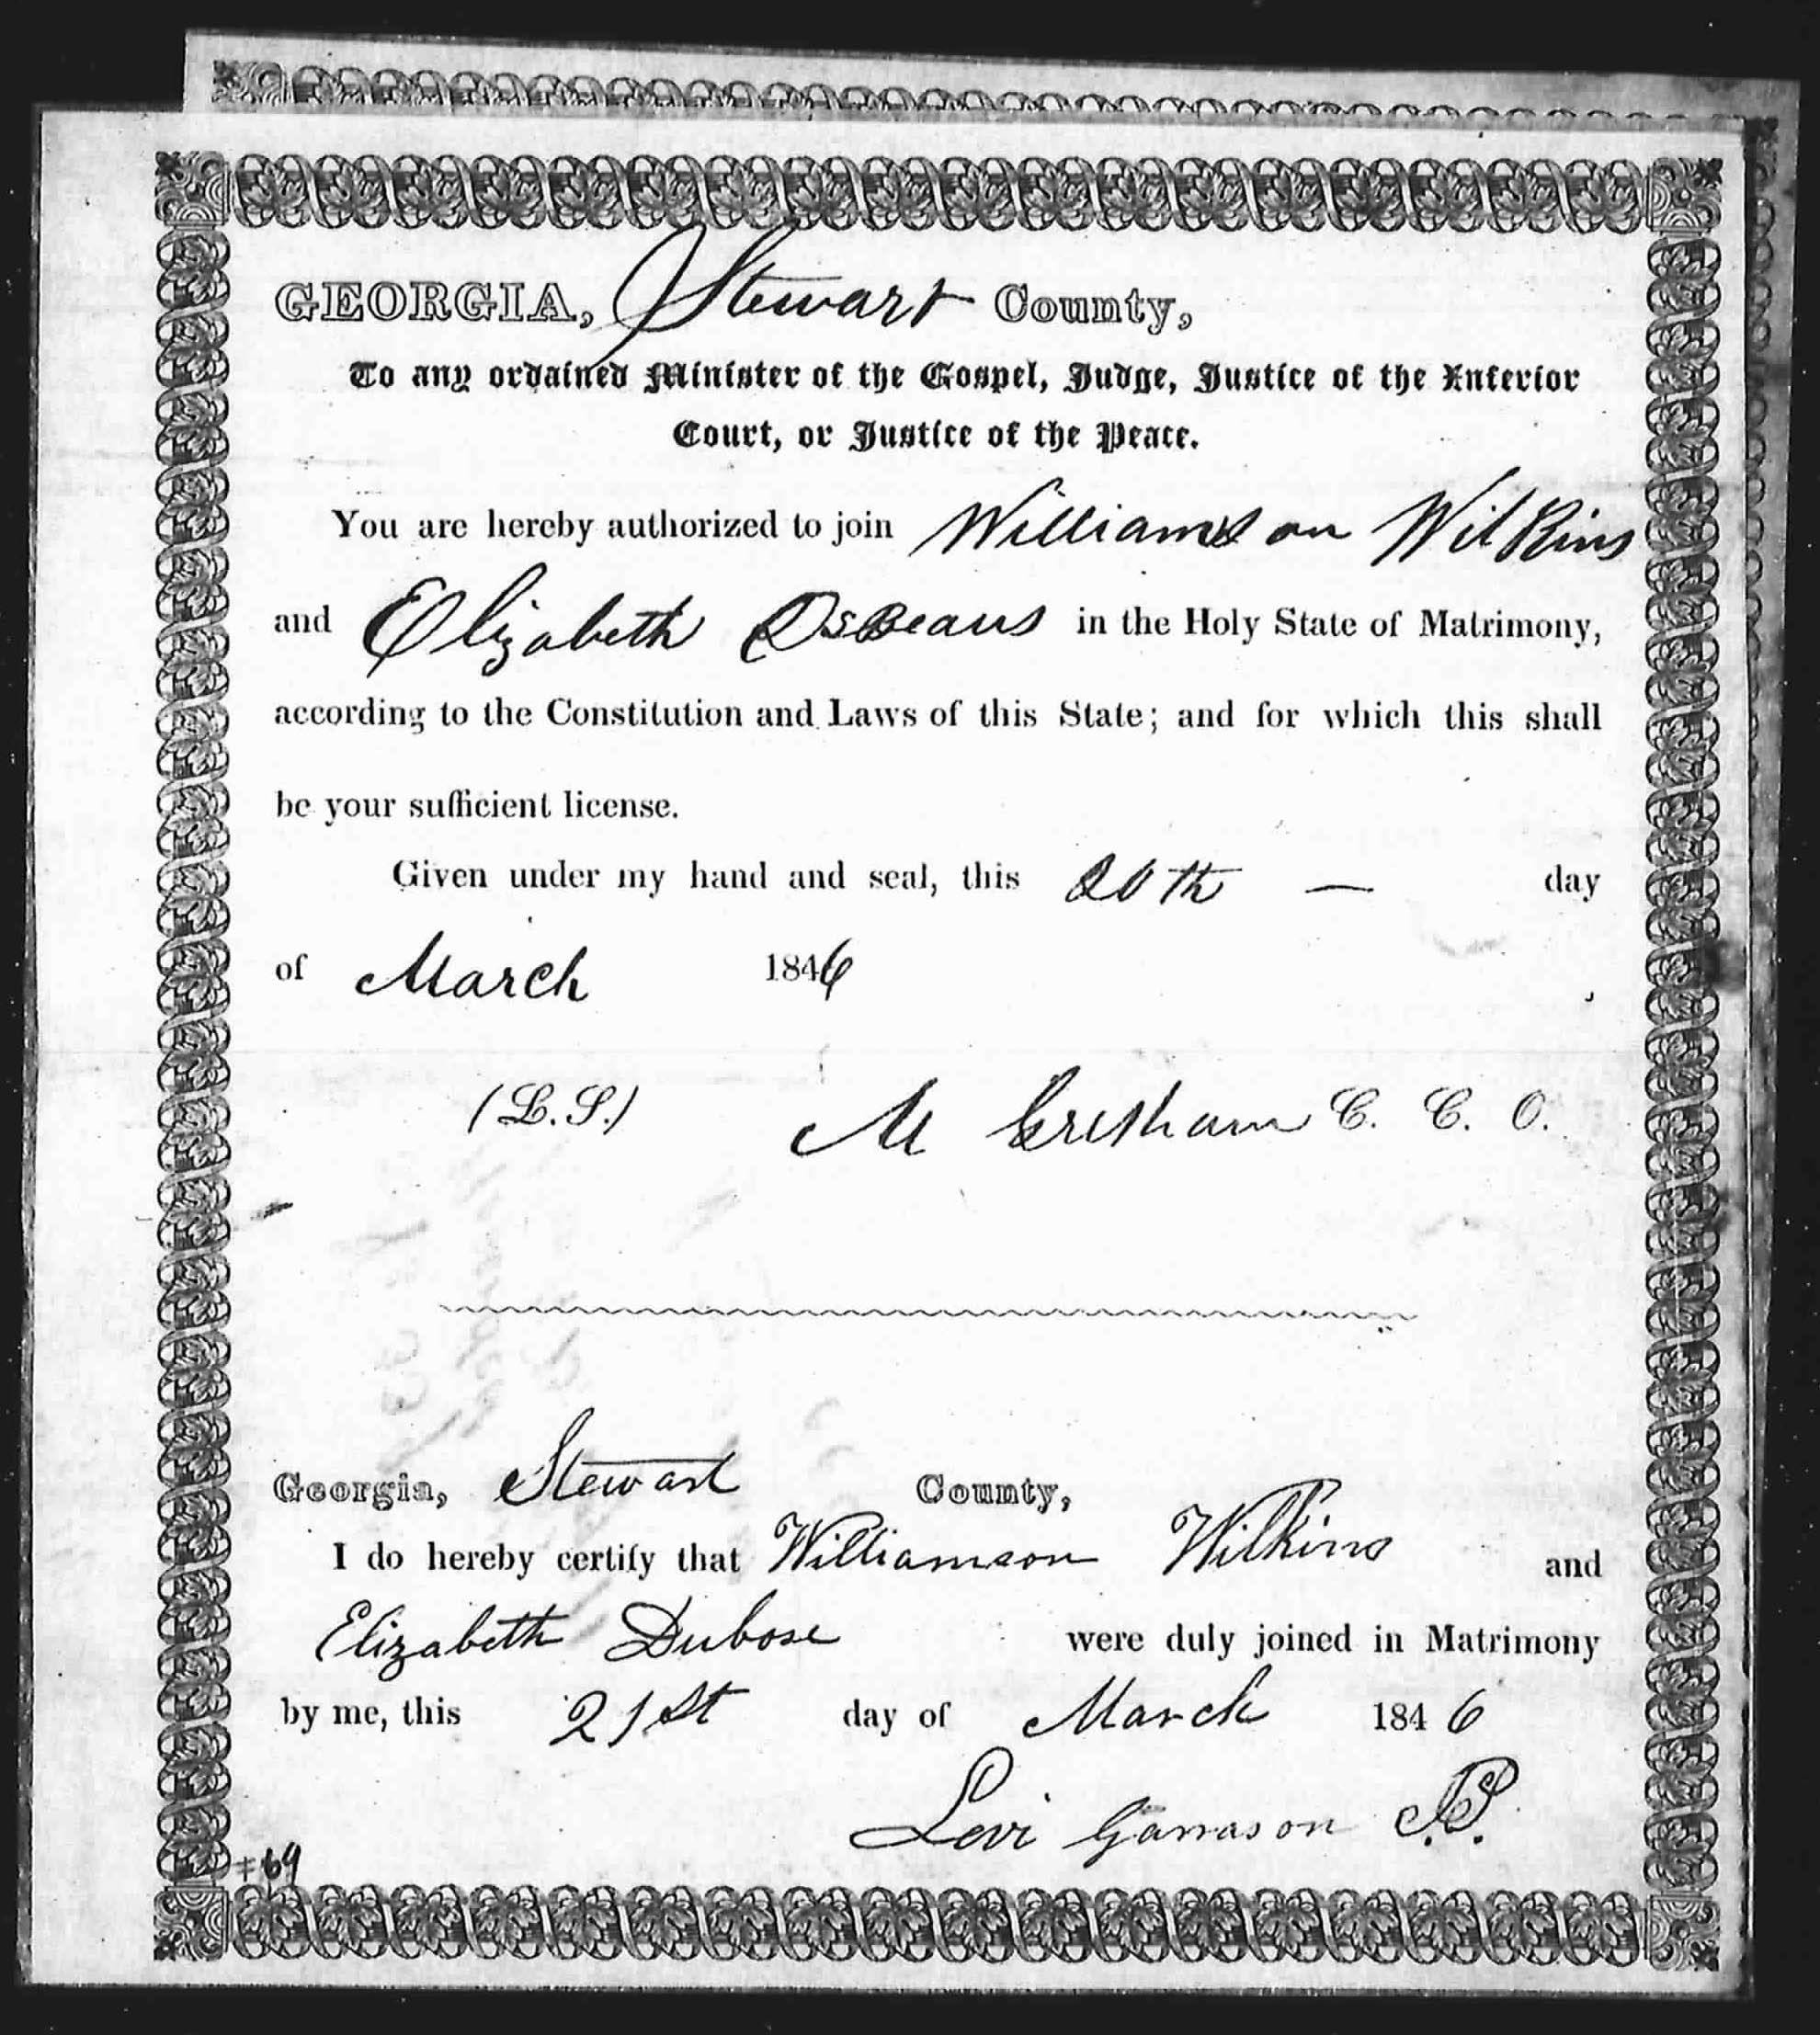 GEORGIA, Stewart County,
To any ordained Minister of the Gospel, Judge, Justice of the Inferior
Court, or Justice of the Peace.
You are hereby authorized to join Williamson Wilkins
and Elizabeth in the Holy State of Matrimony,
according to the Constitution and Laws of this State; and for which this shall
be your sufficient license.
Given under my hand and seal, this 20th — day
of March 1846
(L.S.) M Gresham C. C. O.
Georgia, Stewart County,
I do hereby certify that Williamson Wilkins and
Elizabeth Dubose were duly joined in Matrimony
by me, this 21st day of March 1846
Levi Garrason J.P.
#69